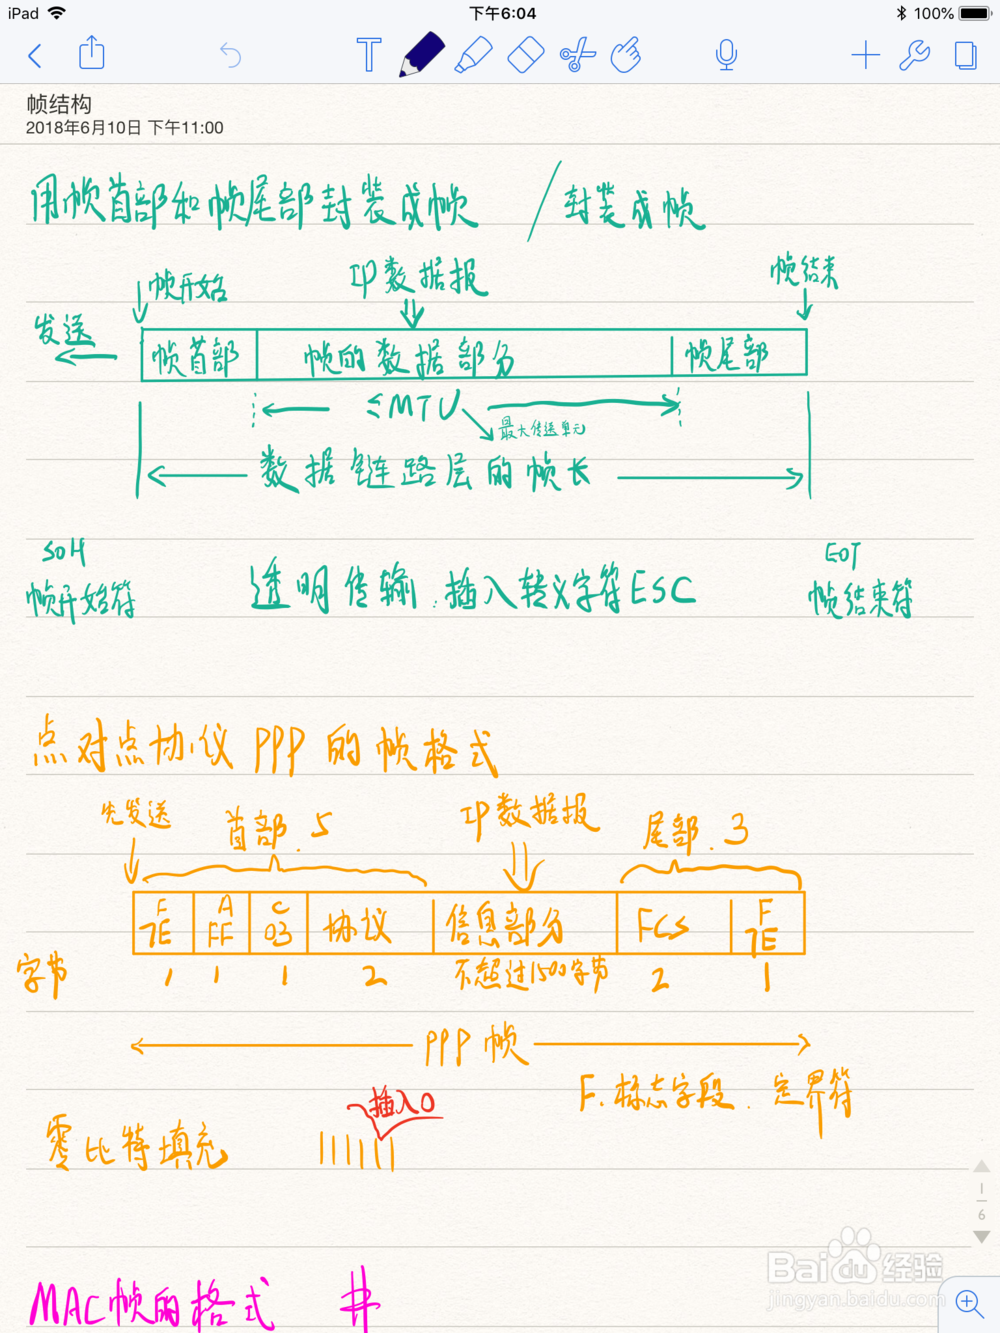 iPad 下午6:04 100%
帧结构
2018年6月10日 下午11:00
用帧首部和帧尾部封装成帧 / 封装成帧
帧开始 IP数据报 帧结束
发送
帧首部 帧的数据部分 帧尾部
≤MTU
最大传送单元
数据链路层的帧长
SOH EOT
帧开始符 透明传输.插入转义字符ESC 帧结束符
点对点协议PPP的帧格式
先发送 首部.5 IP数据报 尾部.3
F A C F
7E FF 03 协议 信息部分 FCS 7E
字节 1 1 1 2 不超过1500字节 2 1
PPP帧
F.标志字段.定界符
插入0
零比特填充 111111
MAC帧的格式 #
1
6
Baidu经验
jingyan.baidu.com